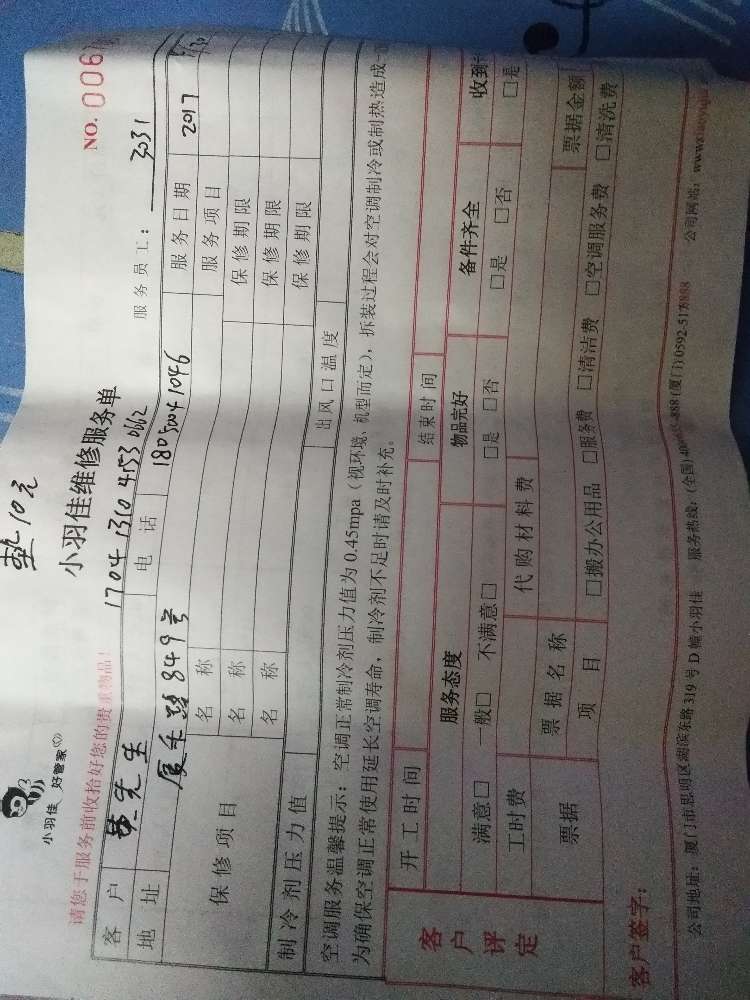 垫10元
小羽佳 好管家
小羽佳维修服务单
NO. 006
请您于服务前收拾好您的贵重物品!
1704 1310 4153 0662
服务员工: 3031
客户 黄先生 电话 18050041046 服务日期 2017
地址 厦禾路849号 服务项目
保修项目 名称 保修期限
名称 保修期限
名称 保修期限
制冷剂压力值 出风口温度
空调服务温馨提示: 空调正常制冷剂压力值为0.45mpa(视环境、机型而定), 拆装过程会对空调制冷或制热造成一
为确保空调正常使用延长空调寿命, 制冷剂不足时请及时补充。
客户评定 开工时间 结束时间
服务态度 物品完好 备件齐全 收到
满意□ 一般□ 不满意□ □是 □否 □是 □否 □是
工时费 代购材料费
票据 票据名称 票据金额
项目 □搬办公用品 □服务费 □清洁费 □空调服务费 □清洗费
客户签字:
公司地址: 厦门市思明区湖滨东路319号D幢小羽佳 服务热线: (全国) 888 (厦门)0592-5178888 公司网站: